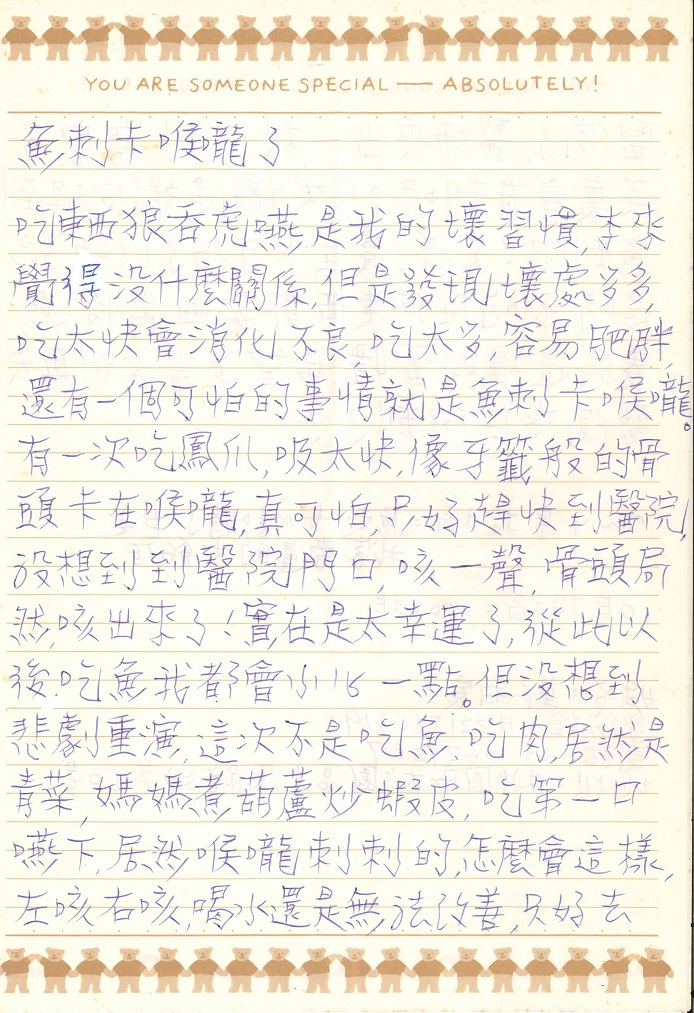 YOU ARE SOMEONE SPECIAL — ABSOLUTELY!
魚刺卡喉嚨了
吃東西狼吞虎嚥是我的壞習慣,本來
覺得沒什麼關係,但是發現壞處多多,
吃太快會消化不良,吃太多,容易肥胖,
還有一個可怕的事情就是魚刺卡喉嚨。
有一次吃鳳爪,吸太快,像牙籤般的骨
頭卡在喉嚨,真可怕,只好趕快到醫院,
沒想到到醫院門口,咳一聲,骨頭居
然,咳出來了!實在是太幸運了,從此以
後,吃魚我都會小心一點。但沒想到
悲劇重演,這次不是吃魚.吃肉,居然是
青菜,媽媽煮葫蘆炒蝦皮,吃第一口
嚥下,居然喉嚨刺刺的,怎麼會這樣,
左咳右咳,喝水還是無法改善,只好去